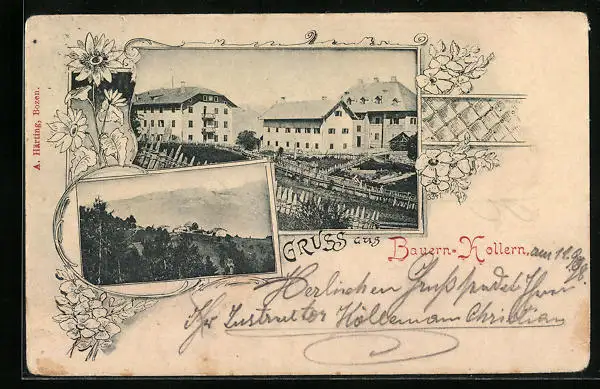 A. Härting, Bozen.
GRUSS aus Bauern-Kollern, am 11.9.98.
Herlichen Gruß sendet Ihnen
Ihr Instruktor Hölleman Christian